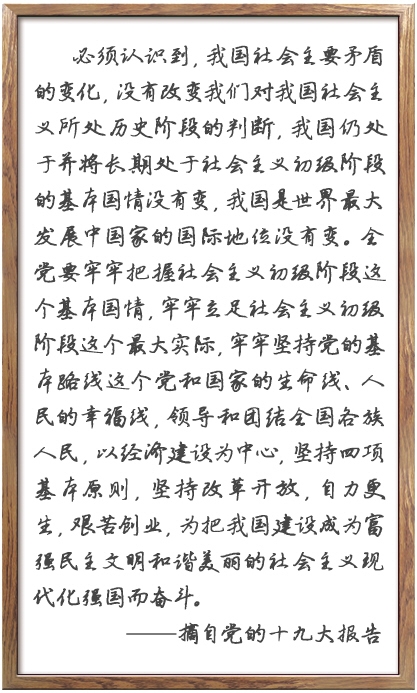 必须认识到，我国社会主要矛盾
的变化，没有改变我们对我国社会主
义所处历史阶段的判断，我国仍处
于并将长期处于社会主义初级阶段
的基本国情没有变，我国是世界最大
发展中国家的国际地位没有变。全
党要牢牢把握社会主义初级阶段这
个基本国情，牢牢立足社会主义初级
阶段这个最大实际，牢牢坚持党的基
本路线这个党和国家的生命线、人
民的幸福线，领导和团结全国各族
人民，以经济建设为中心，坚持四项
基本原则，坚持改革开放，自力更
生，艰苦创业，为把我国建设成为富
强民主文明和谐美丽的社会主义现
代化强国而奋斗。
——摘自党的十九大报告